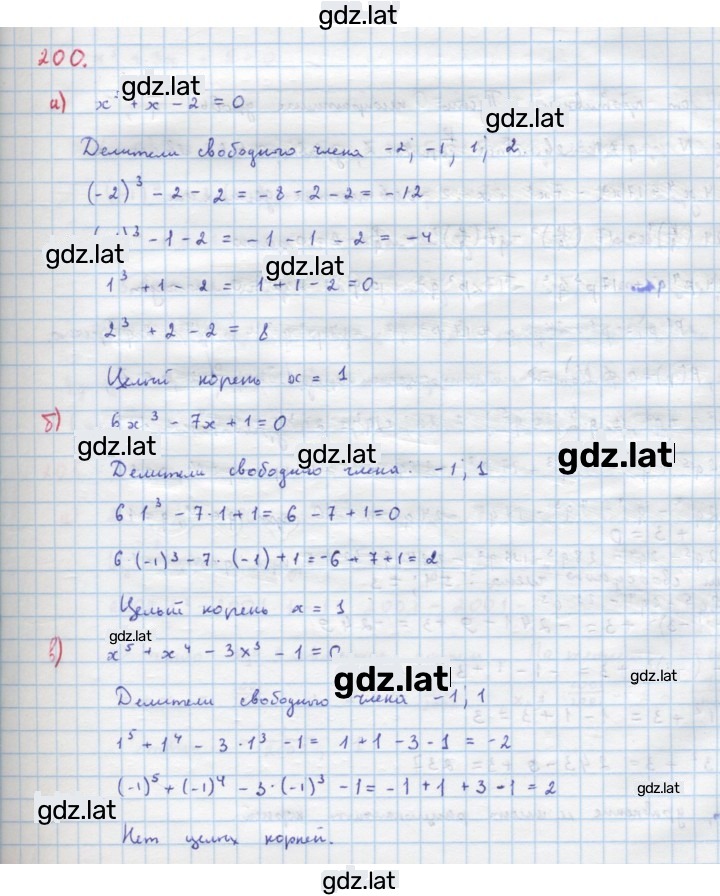 gdz.lat
200.
gdz.lat
а) x³ + x - 2 = 0
gdz.lat
Делители свободного члена -2; -1; 1; 2.
(-2)³ - 2 - 2 = -8 - 2 - 2 = -12
³ - 1 - 2 = -1 - 1 - 2 = -4
gdz.lat
gdz.lat
1³ + 1 - 2 = 1 + 1 - 2 = 0
2³ + 2 - 2 = 8
Целый корень x = 1
б) 6x³ - 7x + 1 = 0
gdz.lat
gdz.lat
gdz.lat
Делители свободного члена: -1; 1
6 · 1³ - 7 · 1 + 1 = 6 - 7 + 1 = 0
6 · (-1)³ - 7 · (-1) + 1 = -6 + 7 + 1 = 2
Целый корень x = 1
gdz.lat
в) x⁵ + x⁴ - 3x³ - 1 = 0
gdz.lat
gdz.lat
Делители свободного члена -1; 1
1⁵ + 1⁴ - 3 · 1³ - 1 = 1 + 1 - 3 - 1 = -2
(-1)⁵ + (-1)⁴ - 3 · (-1)³ - 1 = -1 + 1 + 3 - 1 = 2
gdz.lat
gdz.lat
Нет целых корней.
gdz.lat